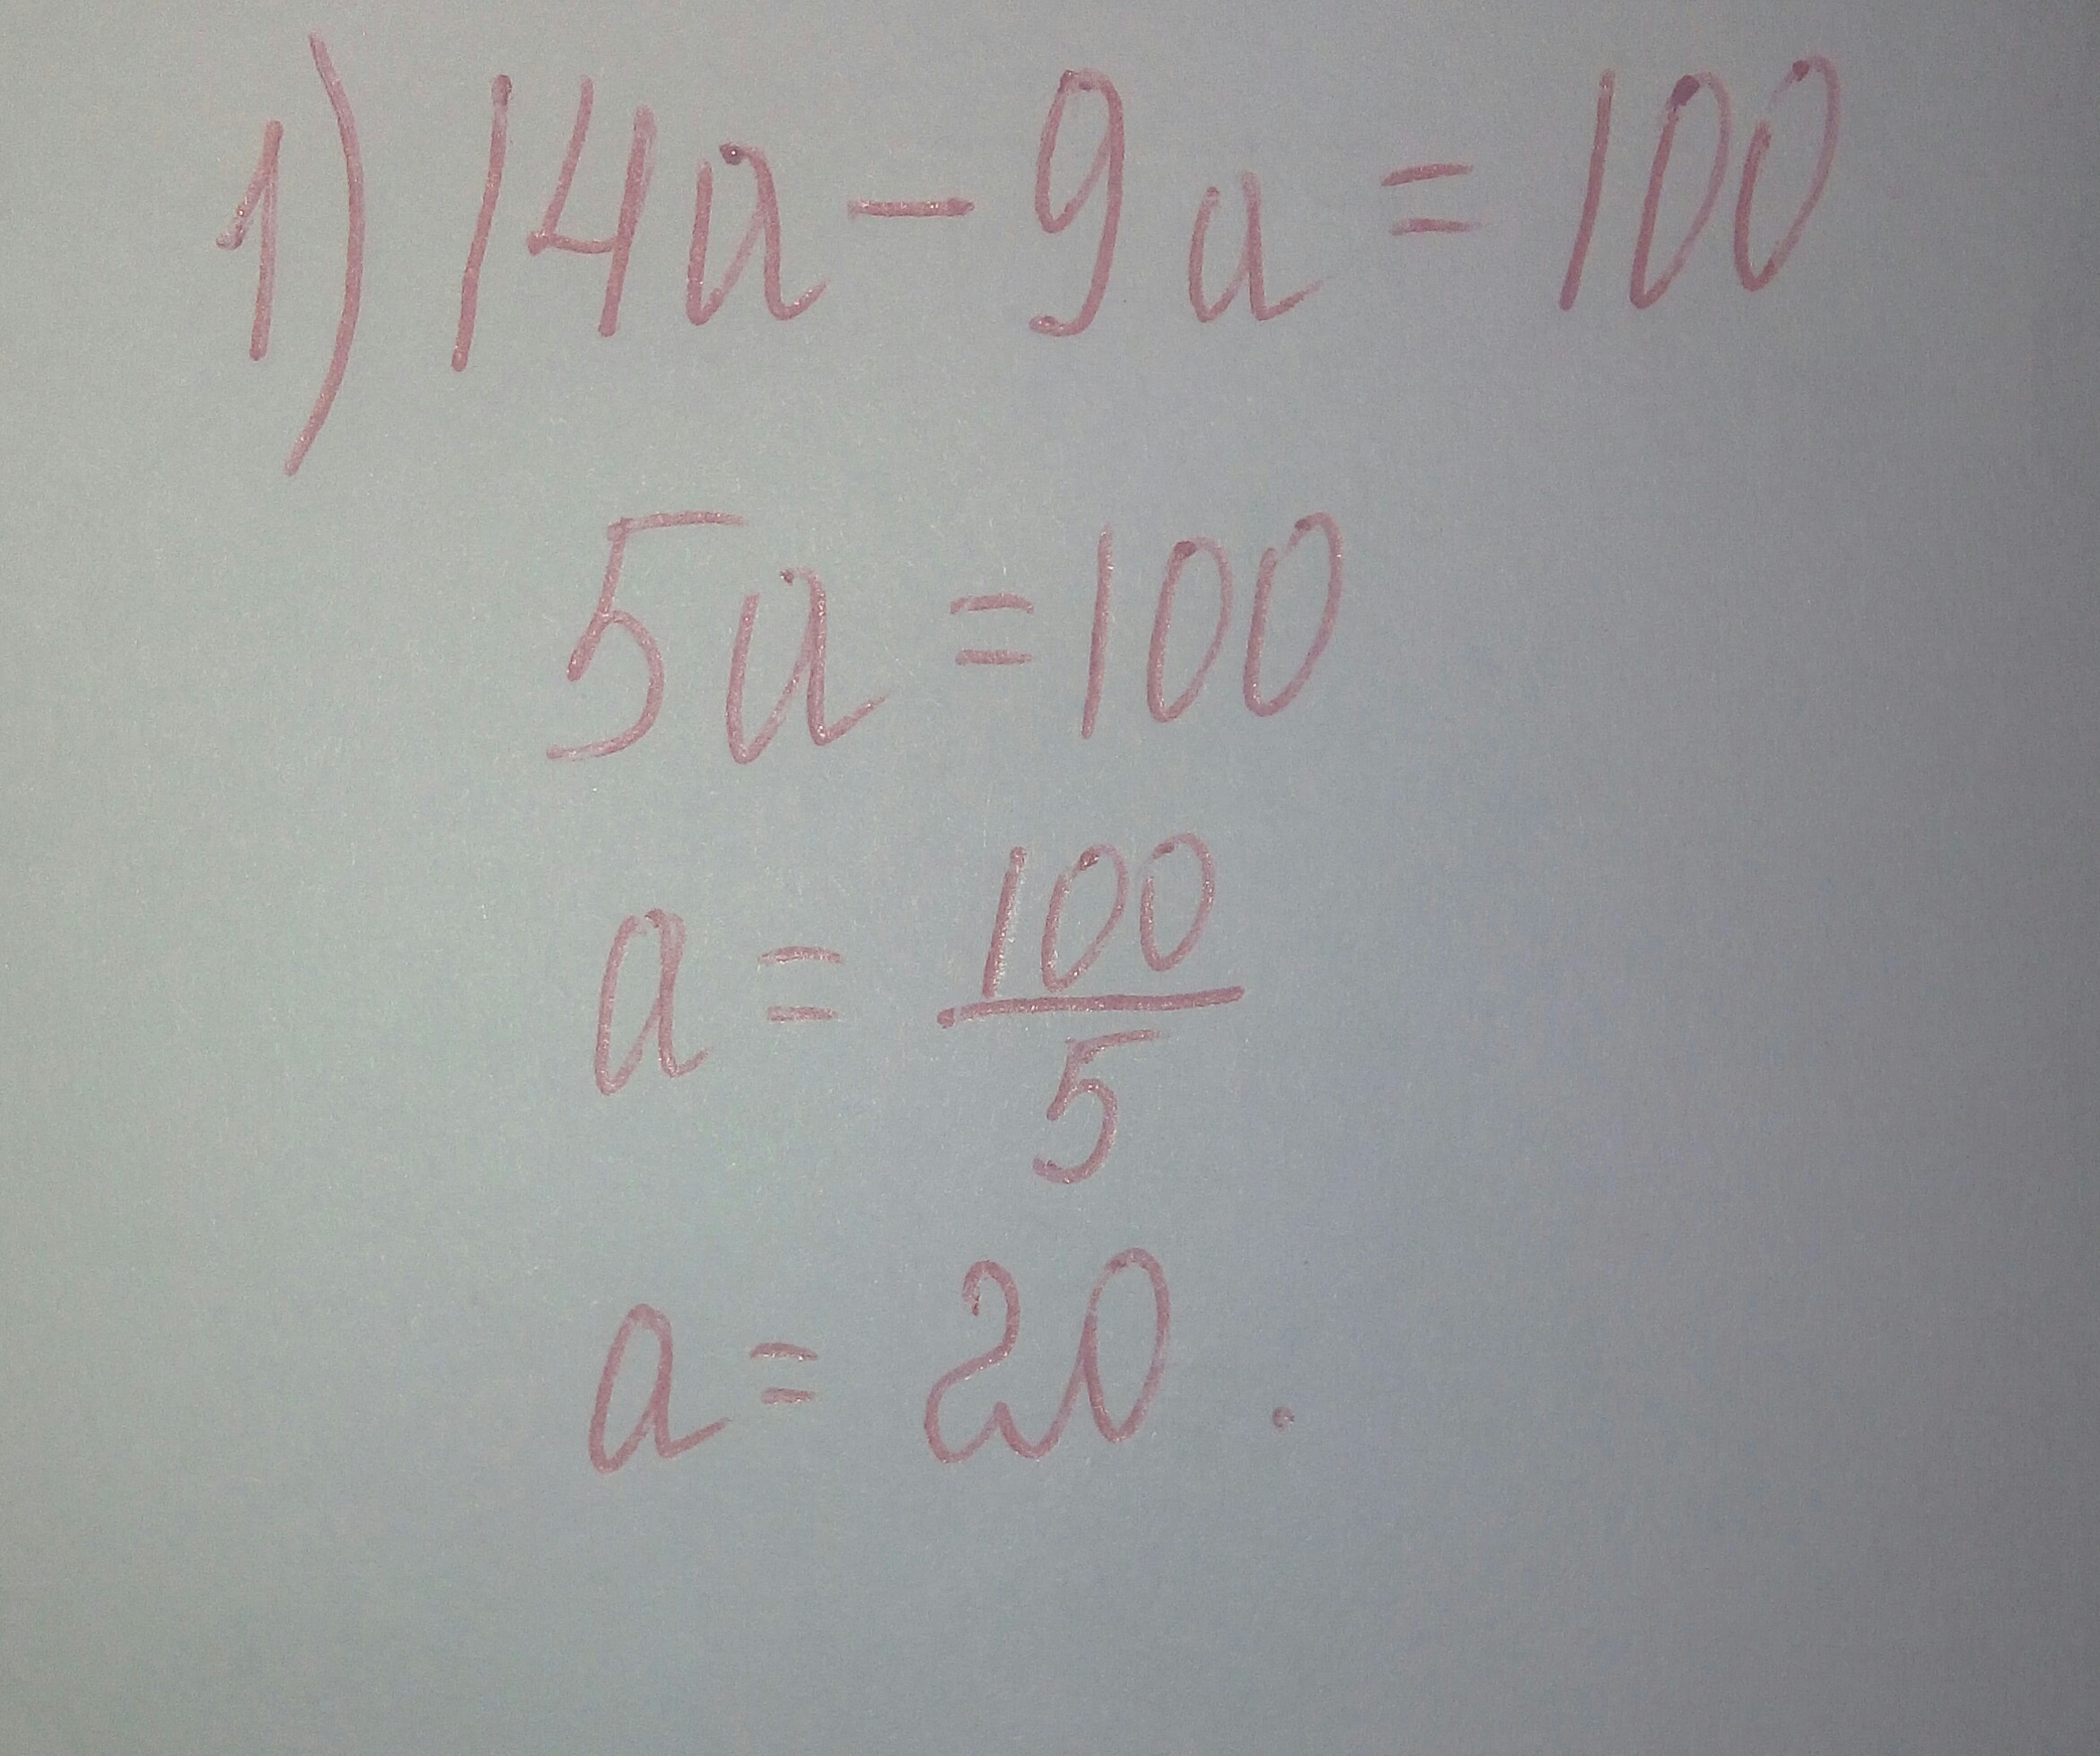 1) 14a - 9a = 100
5a = 100
a = 100/5
a = 20.